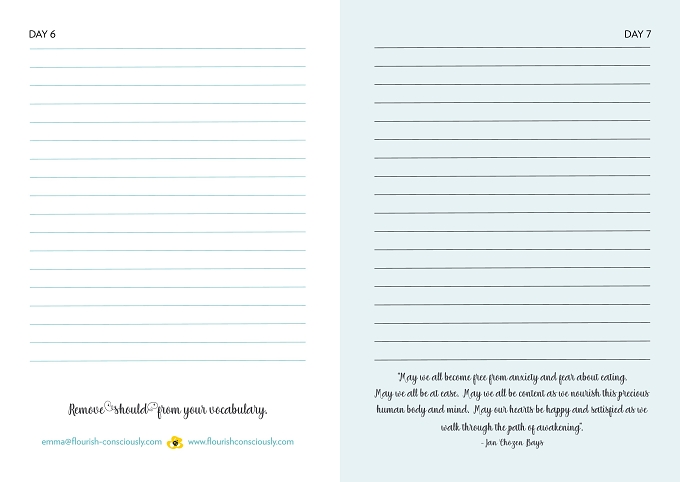 DAY 6
Remove "should" from your vocabulary.
emma@flourish-consciously.com www.flourishconsciously.com
DAY 7
"May we all become free from anxiety and fear about eating.
May we all be at ease. May we all be content as we nourish this precious
human body and mind. May our hearts be happy and satisfied as we
walk through the path of awakening".
- Jan Chozen Bays